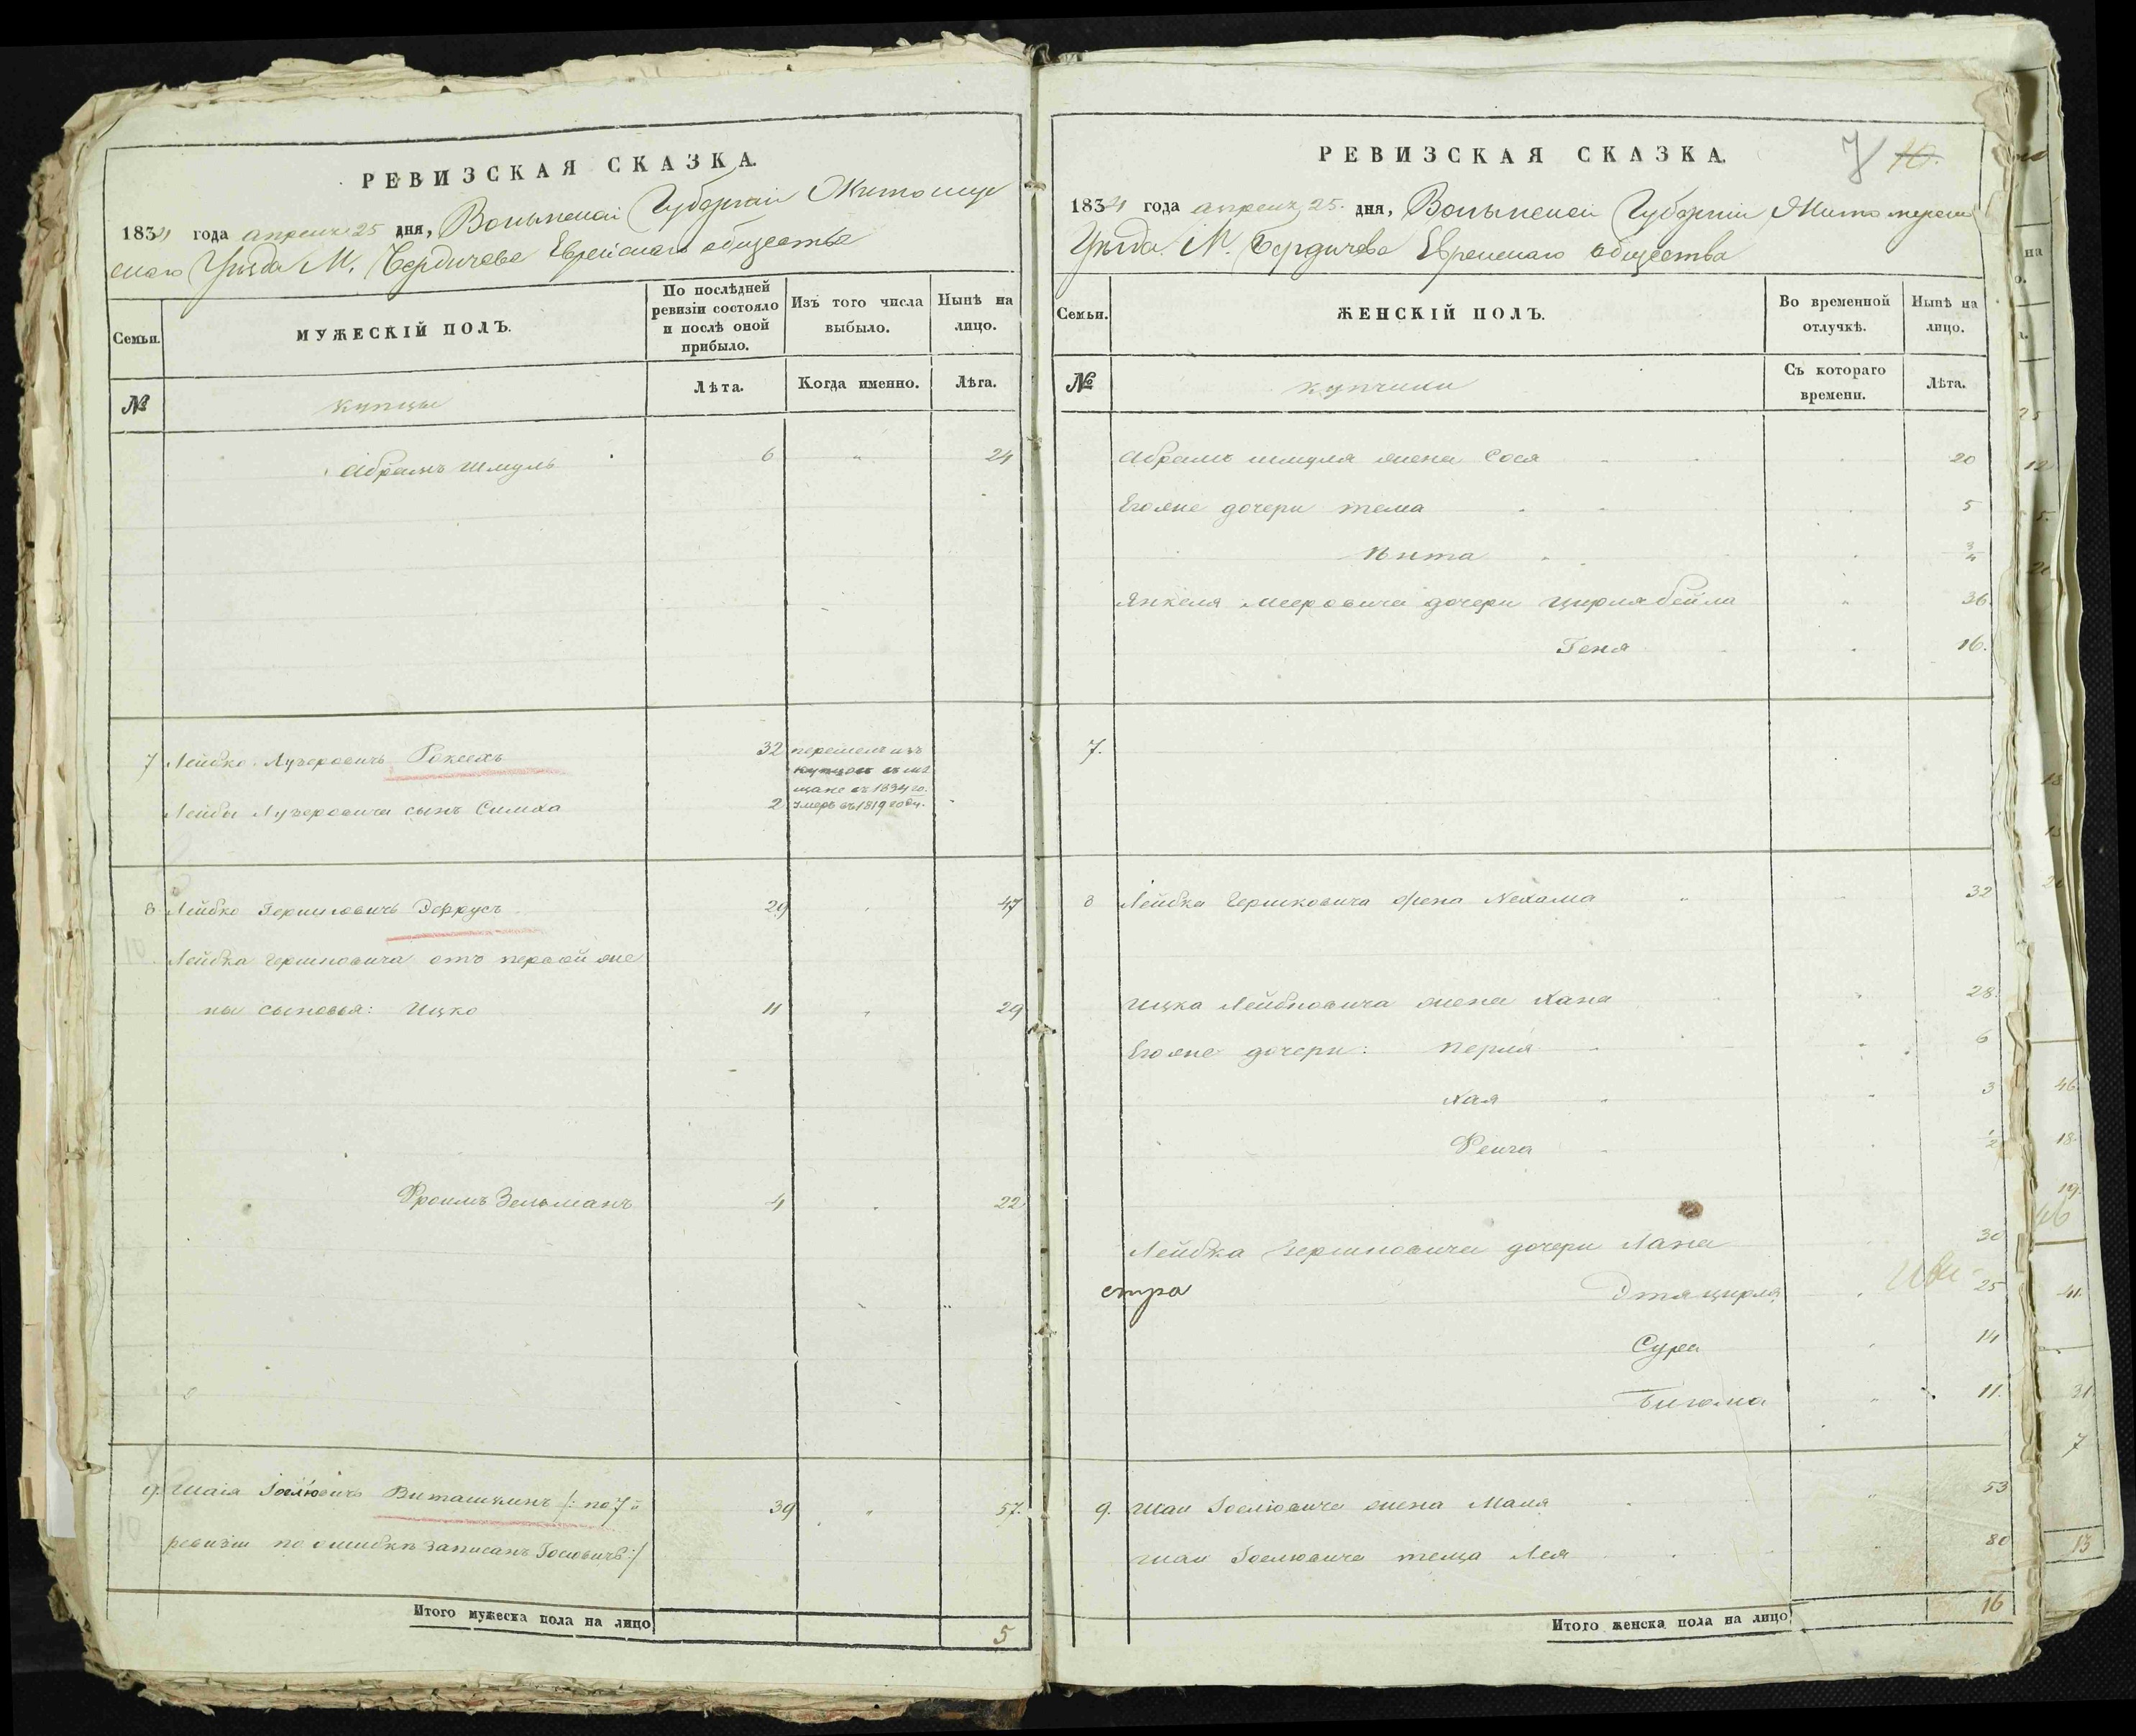 РЕВИЗСКАЯ СКАЗКА.
1834 года апреля 25 дня, Волынской Губернии Житомир
скаго Уѣзда М. Бердичева Еврейскаго общества
Семьи.
МУЖЕСКІЙ ПОЛЪ.
По послѣдней ревизіи состояло и послѣ оной прибыло.
Изъ того числа выбыло.
Нынѣ на лицо.
№
купцы
Лѣта.
Когда именно.
Лѣта.
Абрамъ Шмуль 6 " 24
7 Лейбко Лузеровичъ 32 перешелъ изъ
купцовъ въ мѣ
щане въ 1834 го.
Лейбы Лузеровича сынъ Симха 2 умеръ въ 1819 году.
8 Лейбко Гершковичъ 29 " 47
Лейбка Гершковича отъ первой же
ны сыновья: Ицко 11 " 29
Фроимъ Зельманъ 4 " 22
9. Шаія Іосіовичъ Виташкинъ /: по 7й 39 " 57.
ревизіи по ошибкѣ записанъ Іосіовичъ :/
Итого мужеска пола на лицо 5
РЕВИЗСКАЯ СКАЗКА.
7 10.
1834 года апреля 25. дня, Волынской Губерніи Житомирскаго
Уѣзда М. Бердичева Еврейскаго общества
Семьи.
ЖЕНСКІЙ ПОЛЪ.
Во временной отлучкѣ.
Нынѣ на лицо.
№
купчихи
Съ котораго времени.
Лѣта.
Абрамъ Шмуля жена Сося 20
Егоже дочери Тема 5
Ита 3/4
Янкеля Мееровича дочери Цирля бейла " 36.
Геня 16.
7.
8 Лейбка Гершковича жена Нехама " 32
Ицка Лейбковича жена Хана " 28.
Егоже дочери: Перля 6
Хая 3
Фейга 1/2
Лейбка Гершковича дочери Хана 30
стра Этя цирля 25
Сура 14
11.
9. Шаи Іосіовича жена Маля 53
Шаи Іосіовича теща Лея 80
Итого женска пола на лицо 16